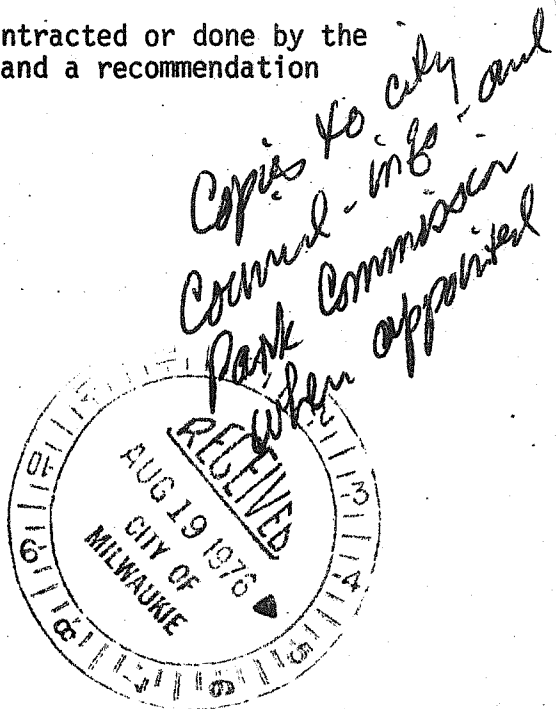 ntracted or done by the
and a recommendation
Copies to city
Council - info - and
Park Commission
when appointed
RECEIVED
AUG 19 1976
CITY OF
MILWAUKIE
2
3
4
5
6
7
8
9
10